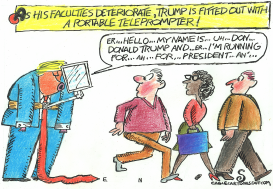 AS HIS FACULTIES DETERIORATE, TRUMP IS FITTED OUT WITH
A PORTABLE TELEPROMPTER!
ER...HELLO...MY NAME IS... UH...DON...
DONALD TRUMP AND...ER...I'M RUNNING
FOR...AH...FOR...PRESIDENT...AH...